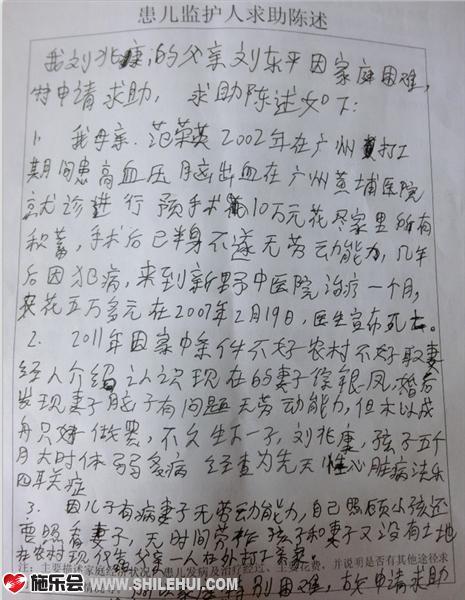 患儿监护人求助陈述
我刘兆康,的父亲刘东平因家庭困难,
特申请求助, 求助陈述如下:
1、我母亲、范荣英2002年在广州打工
期间患高血压脑出血在广州黄埔医院
就诊进行预手术10万元花尽家里所有
积蓄,手术后已半身不遂无劳动能力,几年
后因犯病,来到新野中医院治疗一个月,
花五万多元在2007年2月19日,医生宣布死亡。
2、2011年因家中条件不好农村不好取妻
经人介绍认识现在的妻子徐银凤,婚后
发现妻子脑子有问题无劳动能力,但木以成
舟只好做罢,不久生下一子,刘兆康,孩子五个
月大时体弱多病 经查为先天性心脏病法乐
四联症
3、因儿子有病妻子无劳动能力,自己照顾小孩还
要照看妻子,无时间劳作 孩子和妻子又没有土地
在农村现仅靠父亲一人在外打工养家。
注:主要描述家庭经济状况、患儿发病及治疗经过、主要花费,并说明是否有其他途径求
家庭特别困难,故申请求助
施乐会
www.SHILEHUI.com